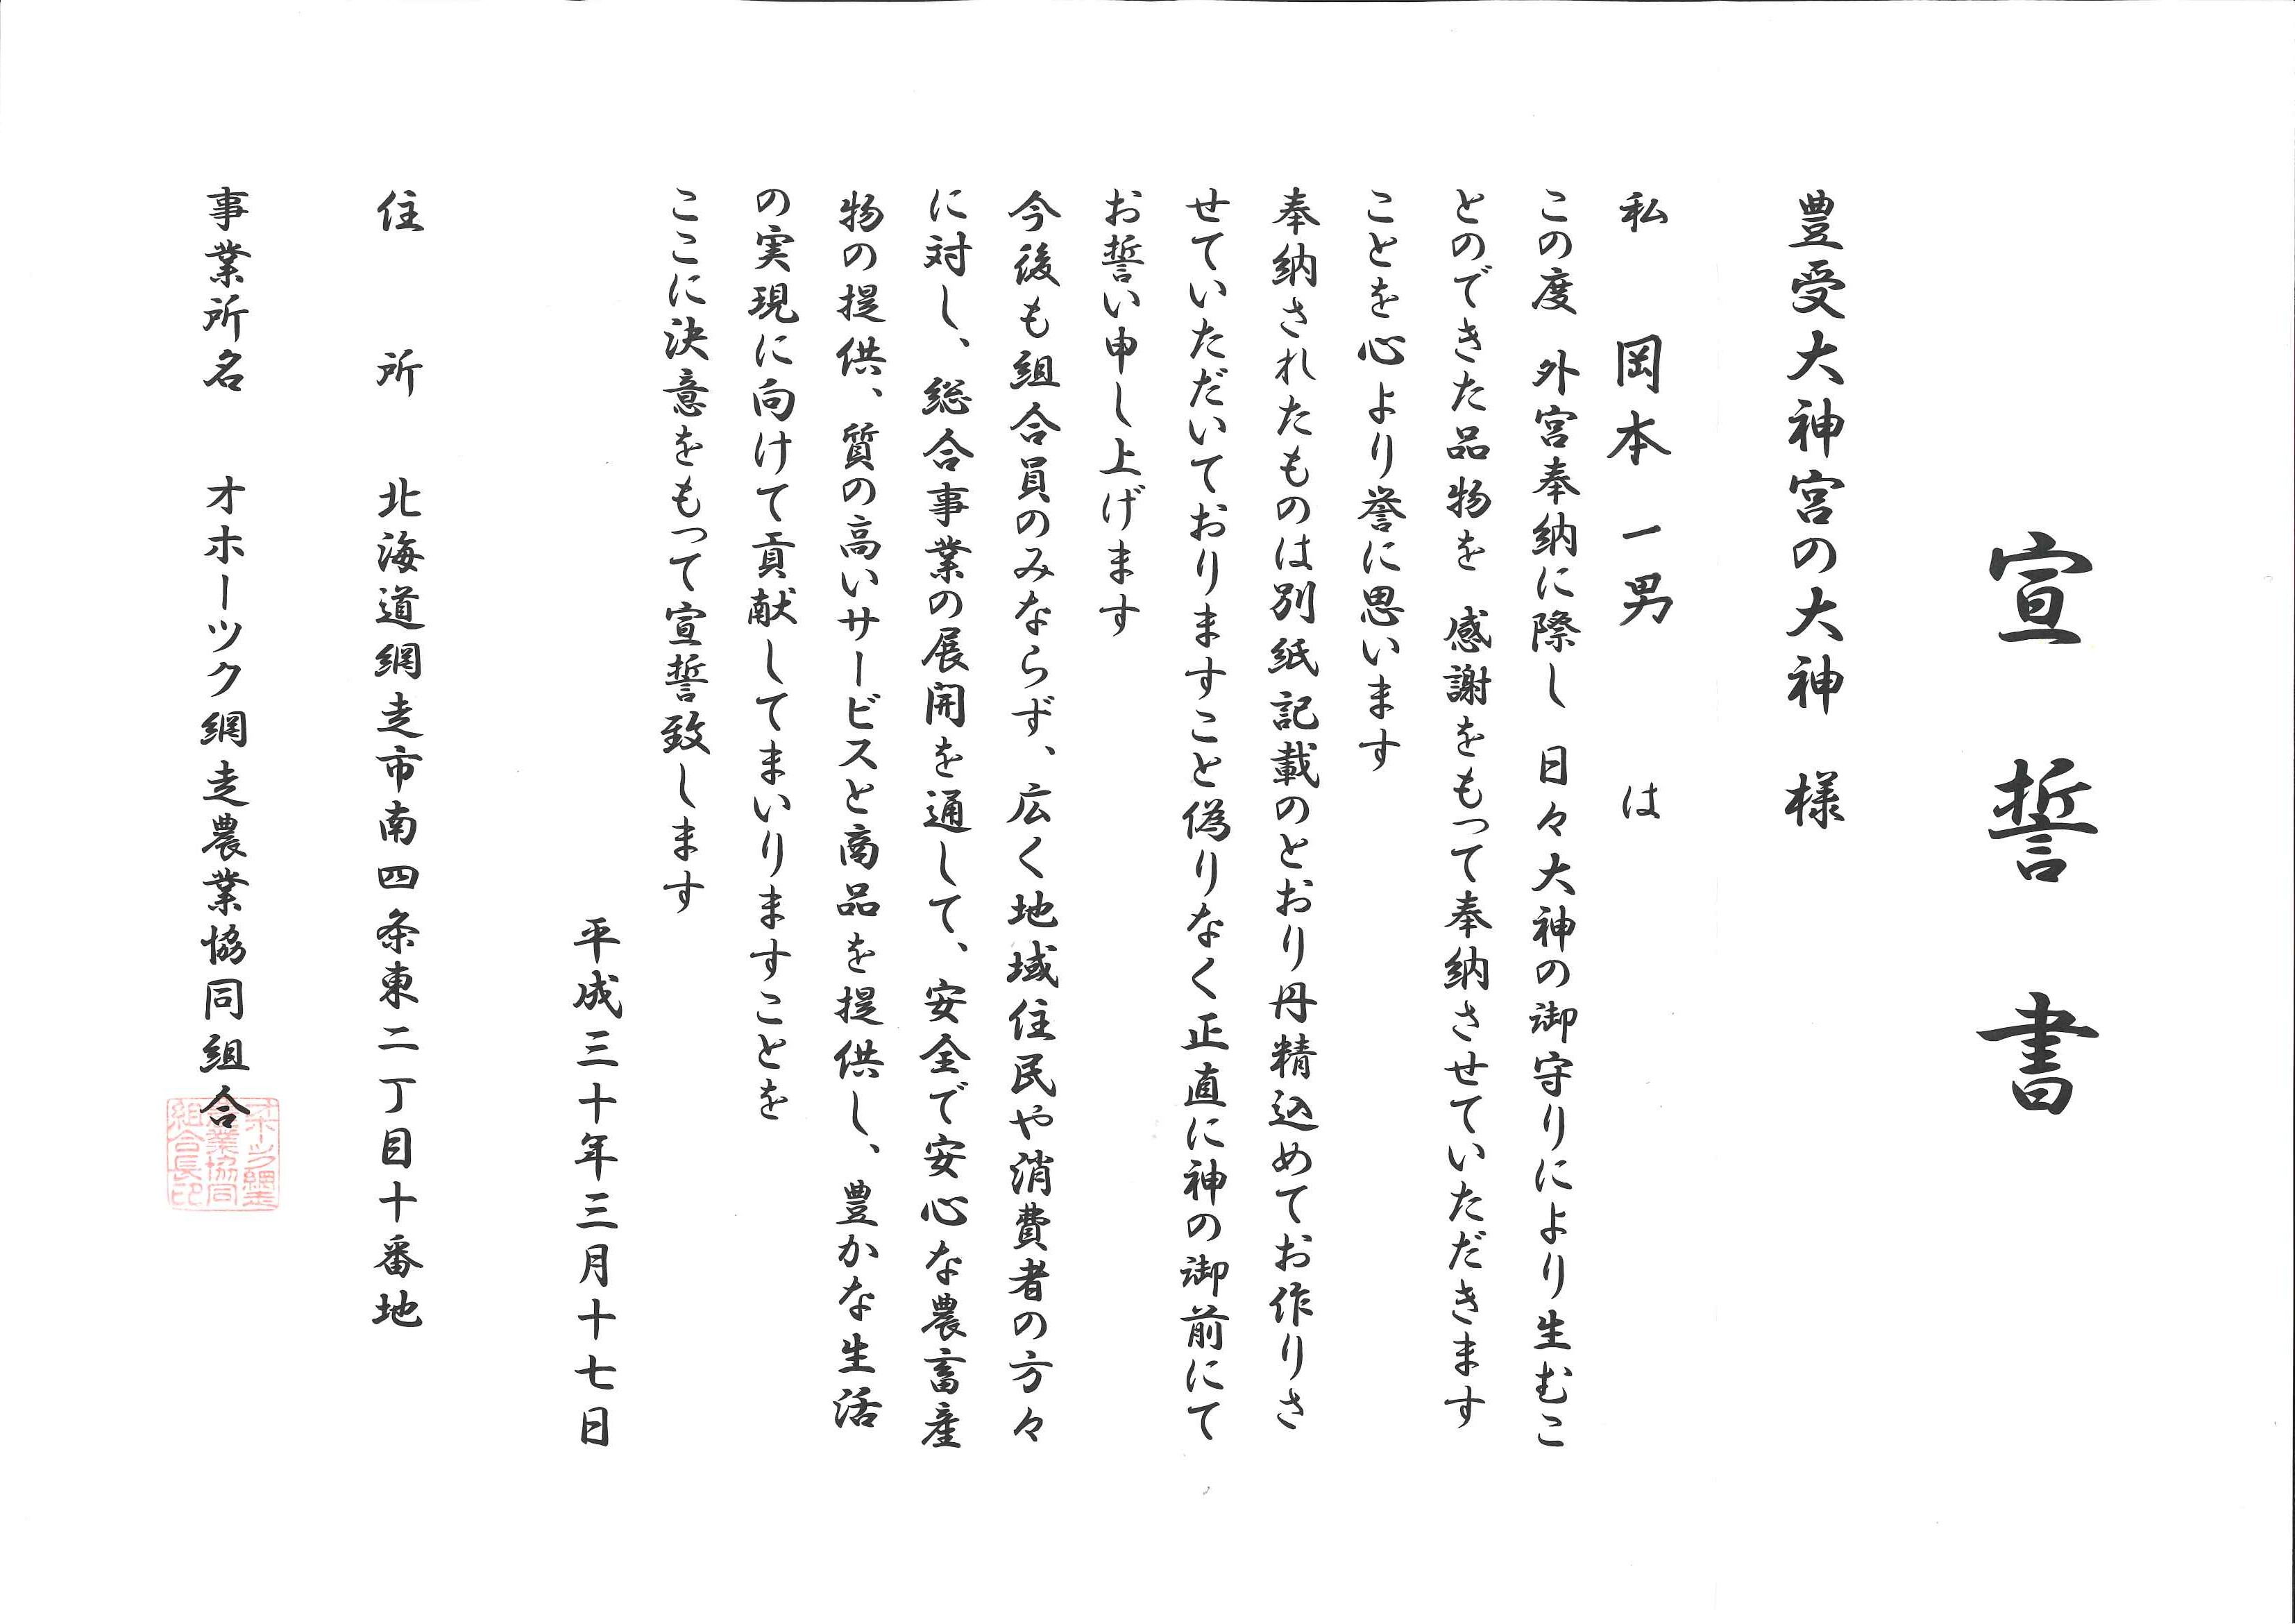 宣誓書
豊受大神宮の大神 様
私 岡本一男 は
この度 外宮奉納に際し 日々大神の御守りにより生むこ
とのできた品物を 感謝をもって奉納させていただきます
ことを心より誉に思います
奉納されたものは別紙記載のとおり丹精込めてお作りさ
せていただいておりますこと偽りなく正直に神の御前にて
お誓い申し上げます
今後も組合員のみならず、広く地域住民や消費者の方々
に対し、総合事業の展開を通して、安全で安心な農畜産
物の提供、質の高いサービスと商品を提供し、豊かな生活
の実現に向けて貢献してまいりますことを
ここに決意をもって宣誓致します
平成三十年三月十七日
住所 北海道網走市南四条東二丁目十番地
事業所名 オホーツク網走農業協同組合
オホーツク網走
農業協同
組合長印